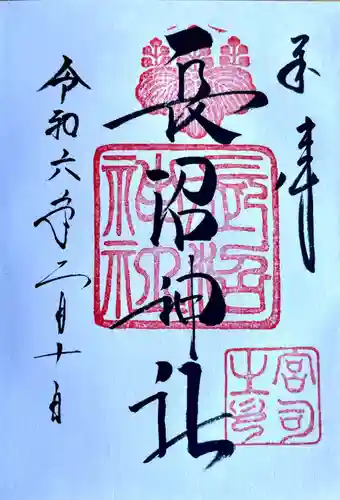 奉拝
長沼神社
長沼神社
宮司之印
令和六年二月十日